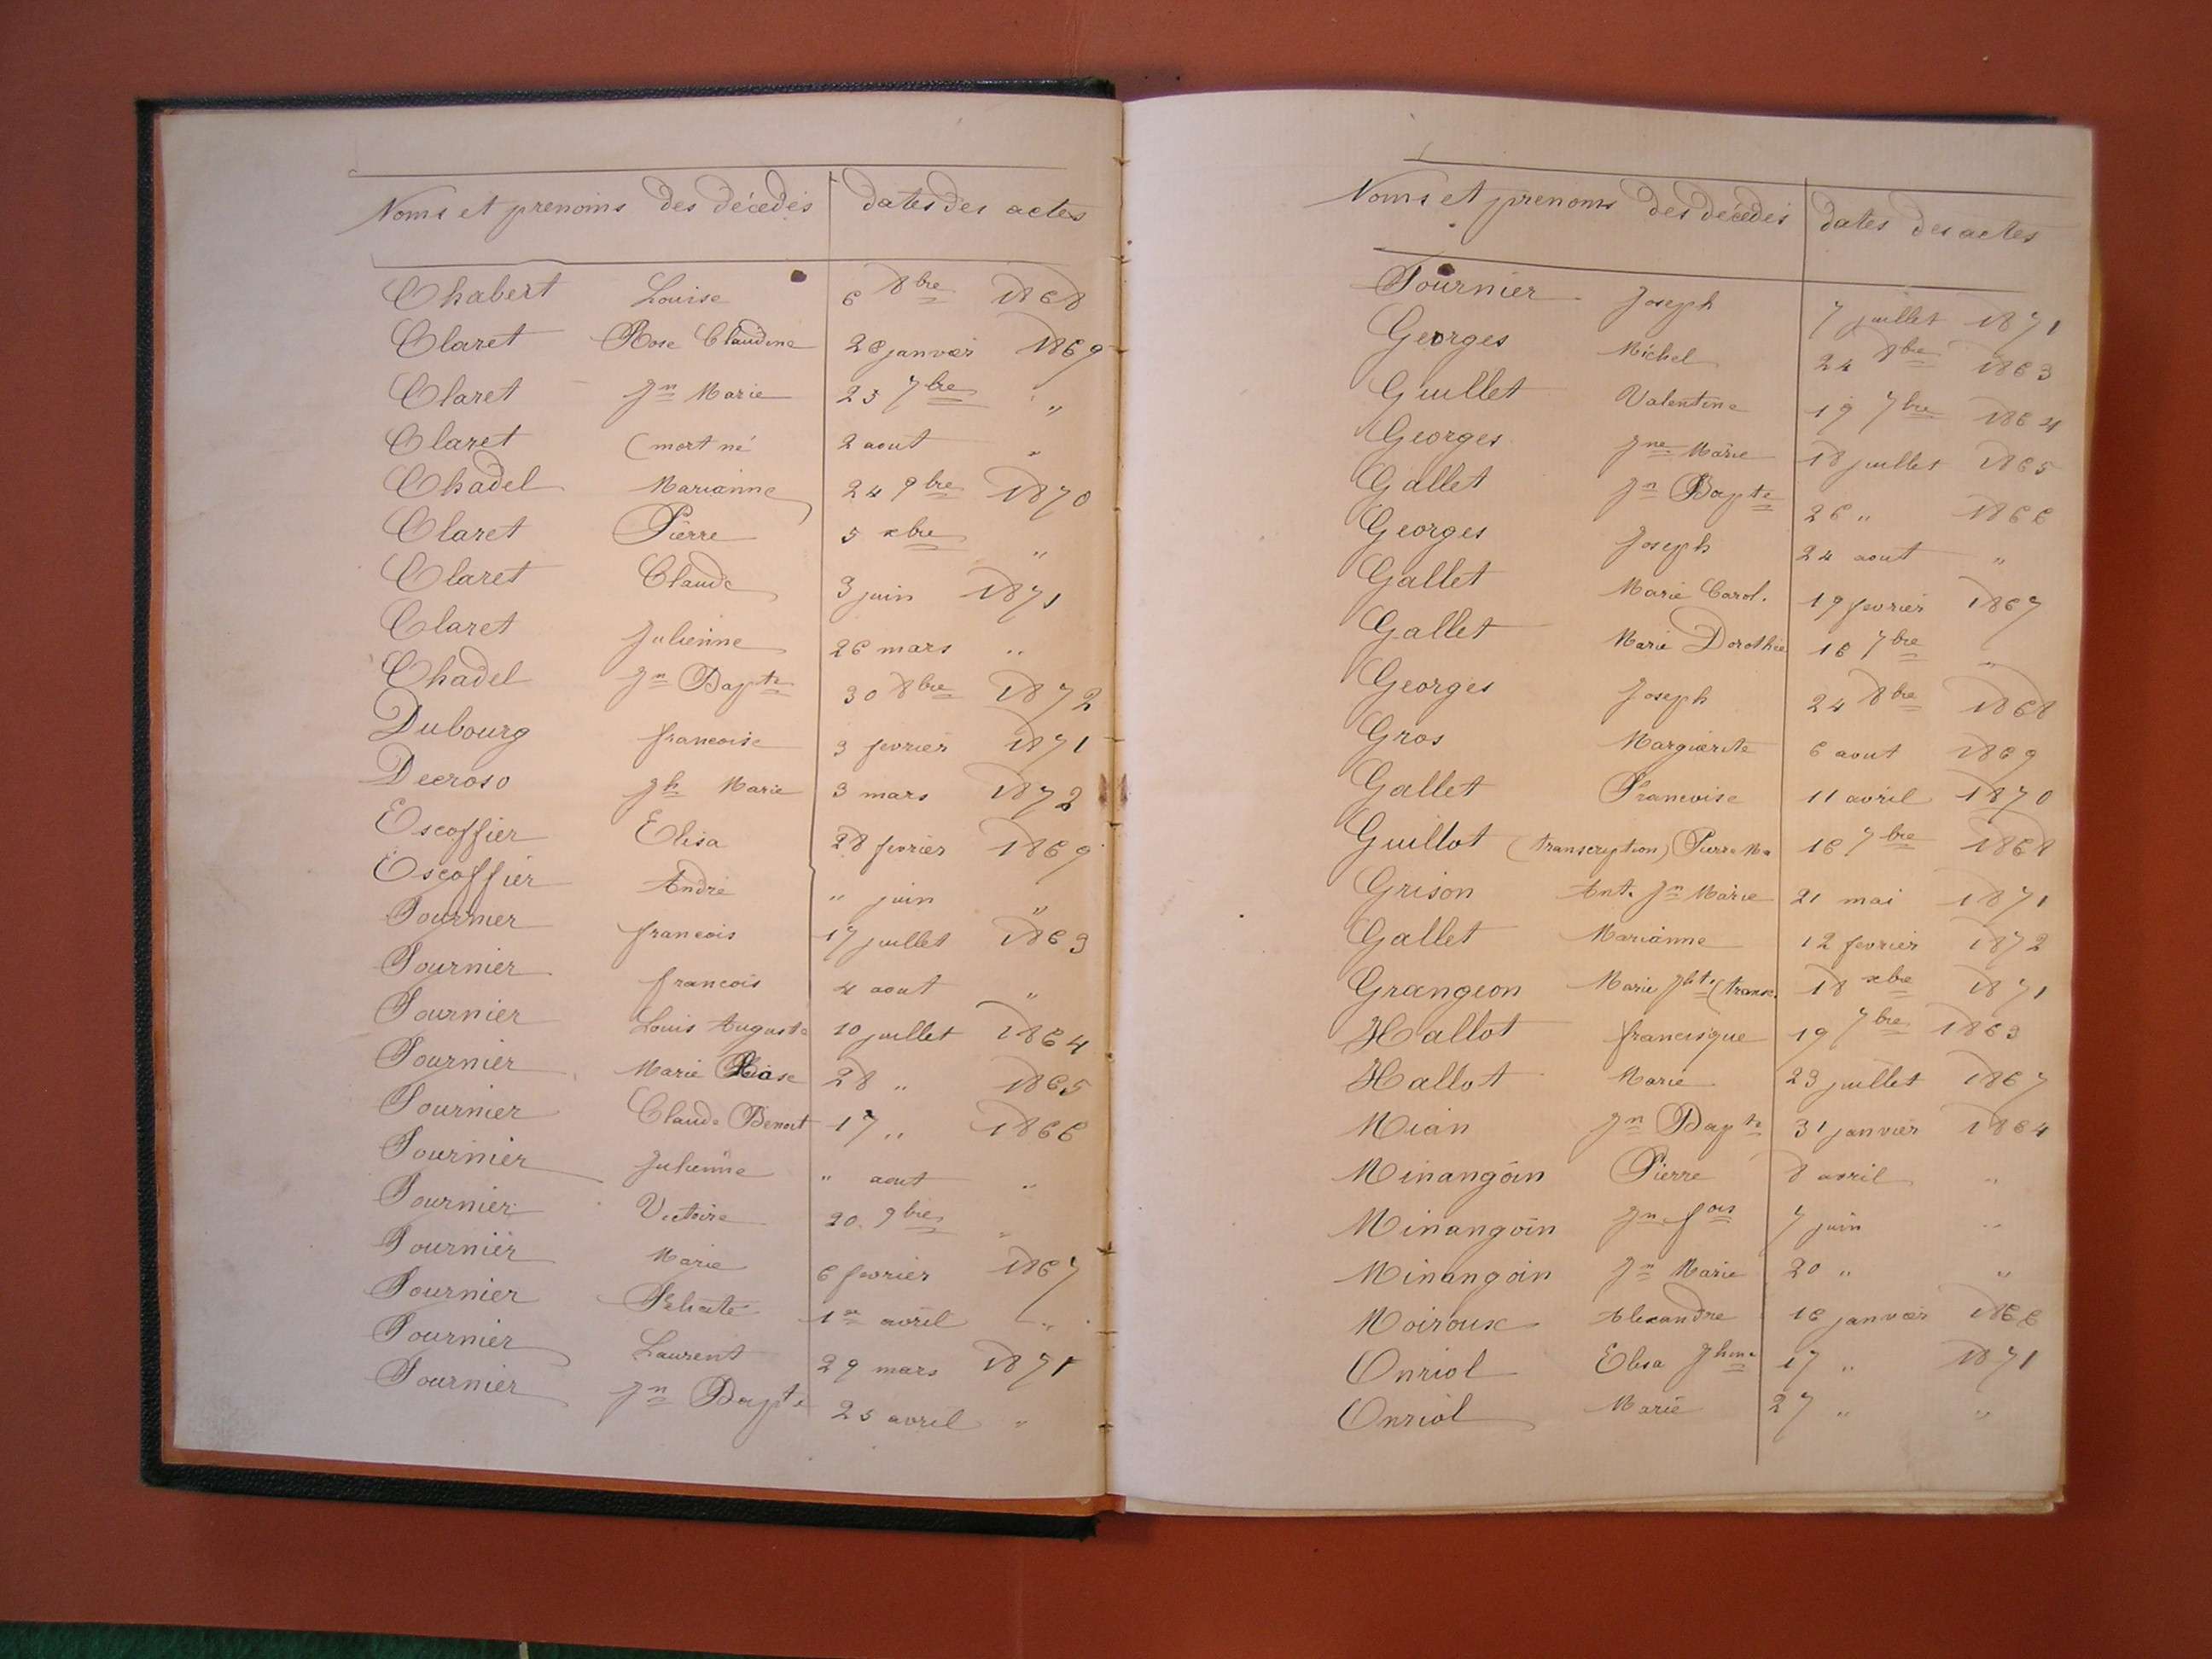 Noms et prenoms des décédés dates des actes
Chabert Louise 6 8bre 1868
Claret Rose Claudine 28 janvier 1869
Claret Jn Marie 23 7bre "
Claret (mort né 2 aout "
Chadel Marianne 24 9bre 1870
Claret Pierre 5 xbre "
Claret Claude 3 juin 1871
Claret Julienne 26 mars "
Chadel Jn Bapte 30 8bre 1872
Dubourg francoise 3 fevrier 1871
Decroso Jh Marie 3 mars 1872
Escoffier Elisa 28 fevrier 1869
Escoffier André " juin "
Fournier francois 17 juillet 1863
Fournier francois 4 aout "
Fournier Louis Auguste 10 juillet 1864
Fournier Marie Rose 28 " 1865
Fournier Claude Benoit 17 " 1866
Fournier Julienne " aout "
Fournier Victoire 20 9bre "
Fournier Marie 6 fevrier 1867
Fournier Felicité 1er avril "
Fournier Laurent 29 mars 1871
Fournier Jn Bapte 25 avril "
Noms et prenoms des décédés dates des actes
Fournier Joseph 7 juillet 1871
Georges Michel 24 8bre 1863
Guillet Valentine 19 7bre 1864
Georges Jne Marie 18 juillet 1865
Gallet Jn Bapte 26 " 1866
Georges Joseph 24 aout "
Gallet Marie Carol. 19 fevrier 1867
Gallet Marie Dorothée 16 7bre "
Georges Joseph 24 8bre 1868
Gros Marguerite 6 aout 1869
Gallet Francoise 11 avril 1870
Guillot (transcription) Pierre Ma 16 7bre 1868
Grison Ant. Jn Marie 21 mai 1871
Gallet Marianne 12 fevrier 1872
Grangeon Marie Jhte (transc. 18 xbre 1871
Hallot francisque 19 7bre 1863
Hallot Marie 23 juillet 1867
Mian Jn Bapte 31 janvier 1864
Minangoin Pierre 8 avril "
Minangoin Jn fois 7 juin "
Minangoin Jn Marie 20 " "
Moiroux Alexandre 16 janvier 1866
Onriol Elisa Jhine 17 " 1871
Onriol Marie 27 " "